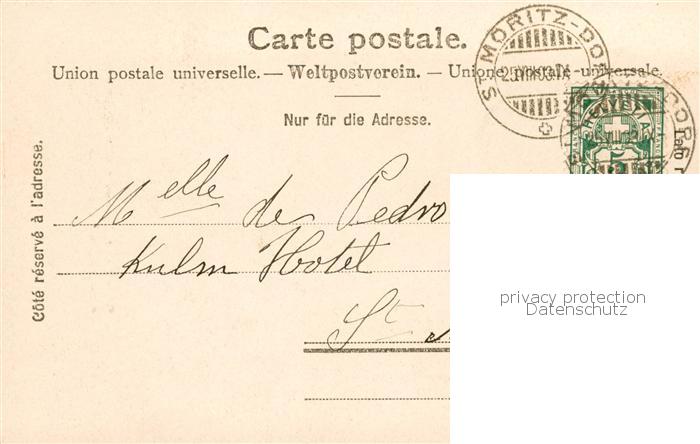 Carte postale.
Union postale universelle. — Weltpostverein. — Unione postale universale.
Nur für die Adresse.
Côté réservé à l'adresse.
ST MORITZ-DORF
HELVETIA
5
Melle de Pedro
Kulm Hotel
St
privacy protection
Datenschutz